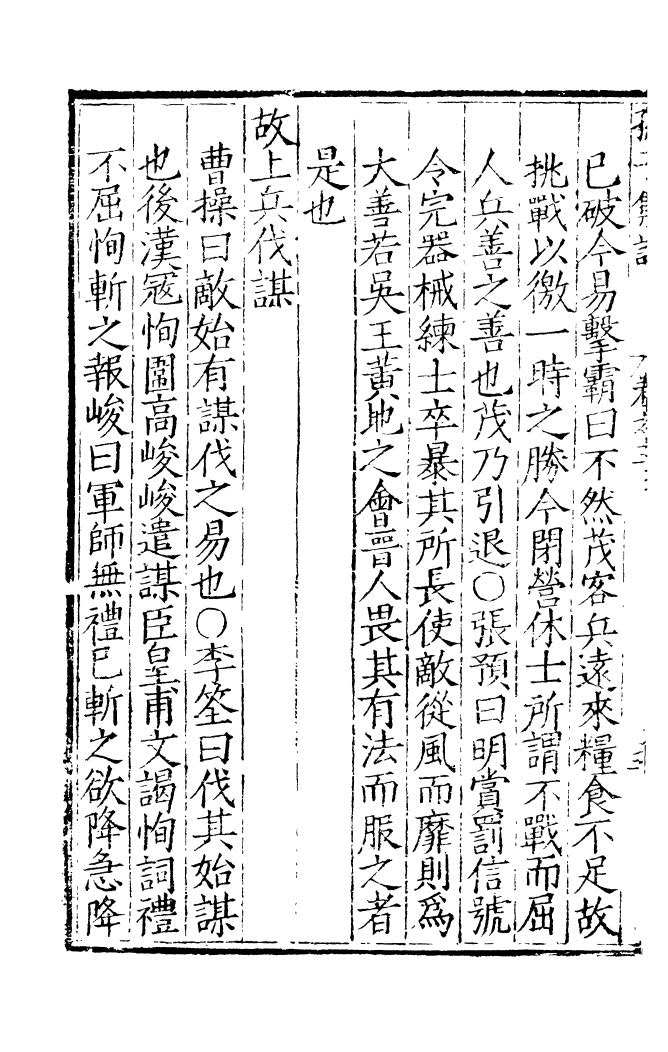 已破今易擊霸曰不然茂客兵遠來糧食不足故
挑戰以徼一時之勝今閉營休士所謂不戰而屈
人兵善之善也茂乃引退○張預曰明賞罰信號
令完器械練士卒暴其所長使敵從風而靡則爲
大善若吳王黃池之會晉人畏其有法而服之者
是也
故上兵伐謀
曹操曰敵始有謀伐之易也○李筌曰伐其始謀
也後漢寇恂圍高峻峻遣謀臣皇甫文謁恂詞禮
不屈恂斬之報峻曰軍師無禮已斬之欲降急降